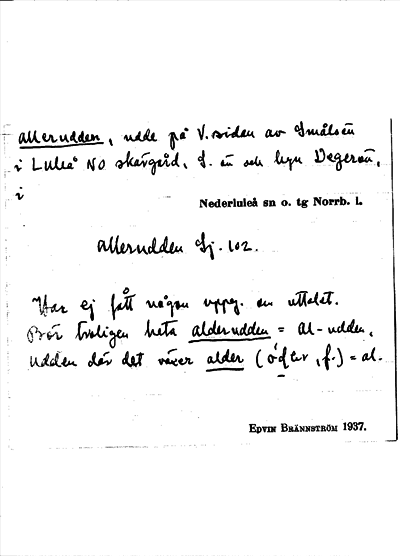 allerudden, udde på V.sidan av Smålsön
i Luleå NO skärgård, S. en och byn Degerön,
i
Nederluleå sn o. tg Norrb. l.
Allerudden Sj. 102.
Har ej fått någon uppg. om uttalet.
Bör troligen heta alderudden = al-udden,
udden där det växer alder ( , f.) = al.
Edvin Brännström 1937.